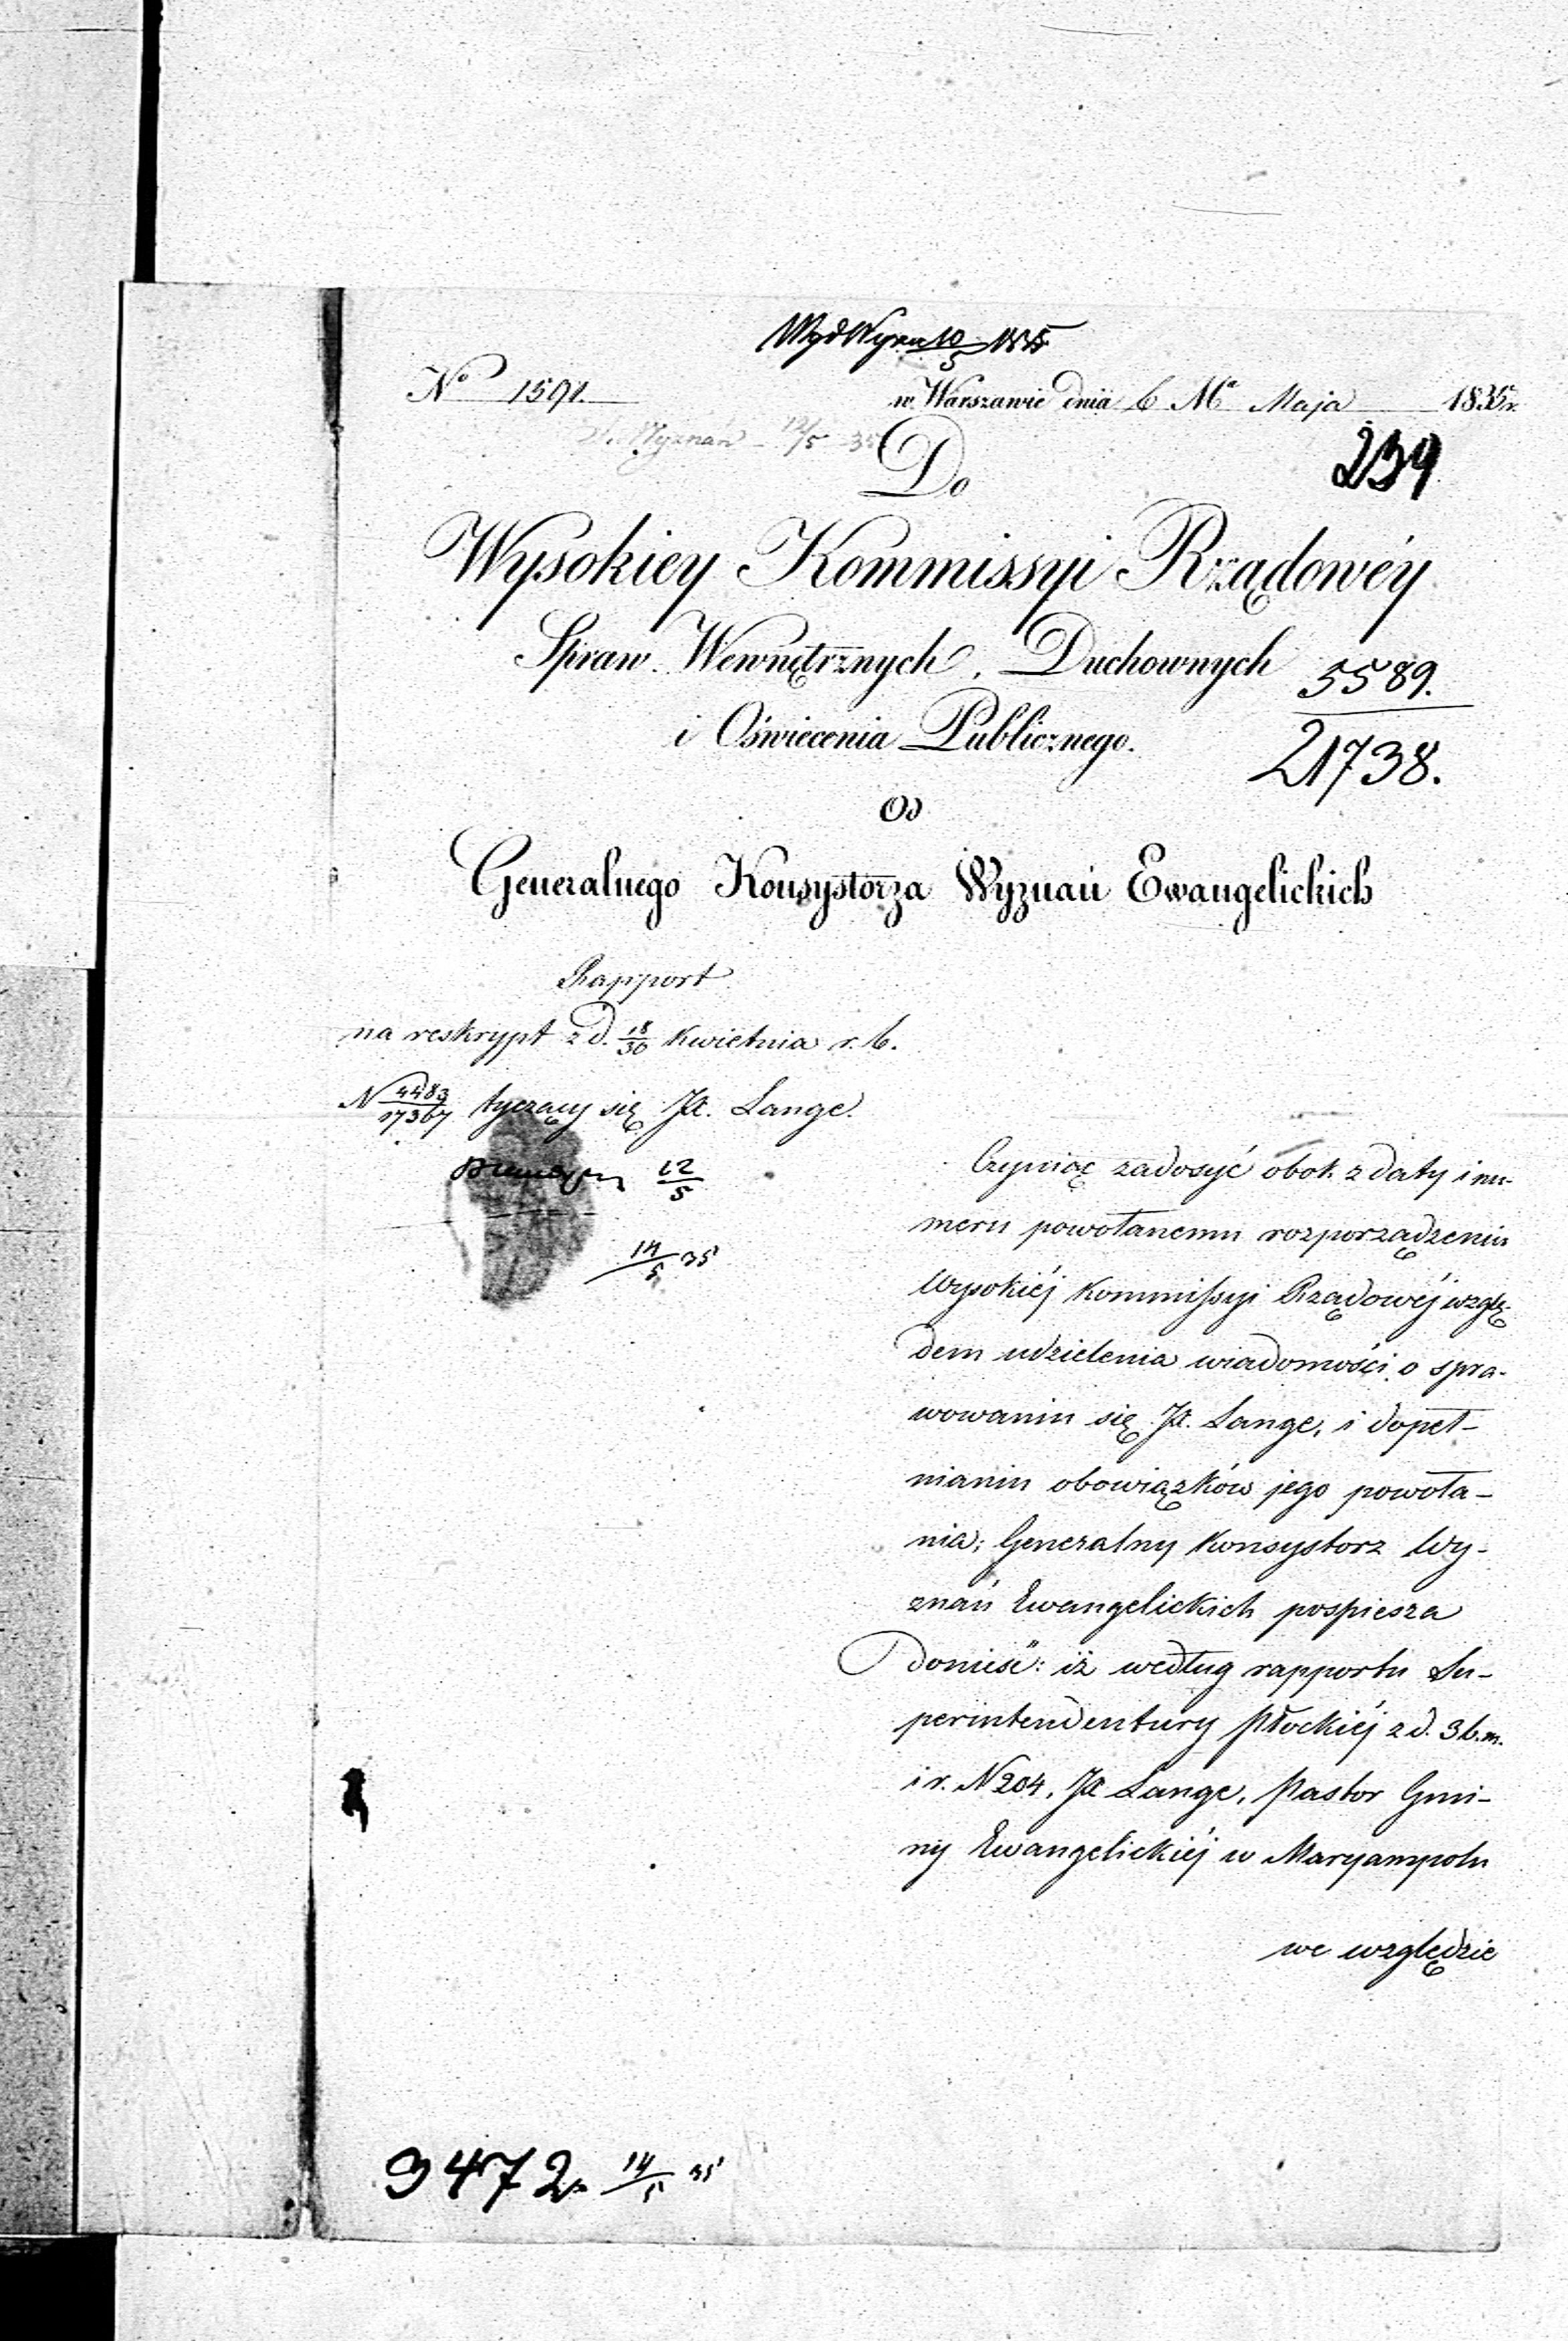 Wyd Wyzn 10/5 1835
No 1591.
w Warszawie dnia 6 Ma Maja 1835 r.
Wyznań - 12/5 35
Do
239
Wysokiey Kommissyi Rządowéy
Spraw Wewnętrznych, Duchownych
5589.
i Oświecenia Publicznego.
21738.
Od
Generalnego Konsystorza Wyznań Ewangelickich
Rapport
na reskrypt z d. 18/30 Kwietnia r. b.
N 4483/17367 tyczący się JX. Lange.
12/5
14/5 35
Czyniąc zadosyć obok z daty i nu-
meru powołanemu rozporządzeniu
Wysokiéj Kommissyi Rządowéj wzglę-
dem udzielenia wiadomości o spra-
wowaniu się JX. Lange, i dopeł-
nianiu obowiązków jego powoła-
nia; Generalny Konsystorz Wy-
znań Ewangelickich pospiesza
donieść: iż według rapportu Su-
perintendentury Płockiéj z d. 3 b. m.
i r. N 204, JX Lange, Pastor Gmi-
ny Ewangelickiéj w Maryampolu
we względzie
3472. 14/5 35